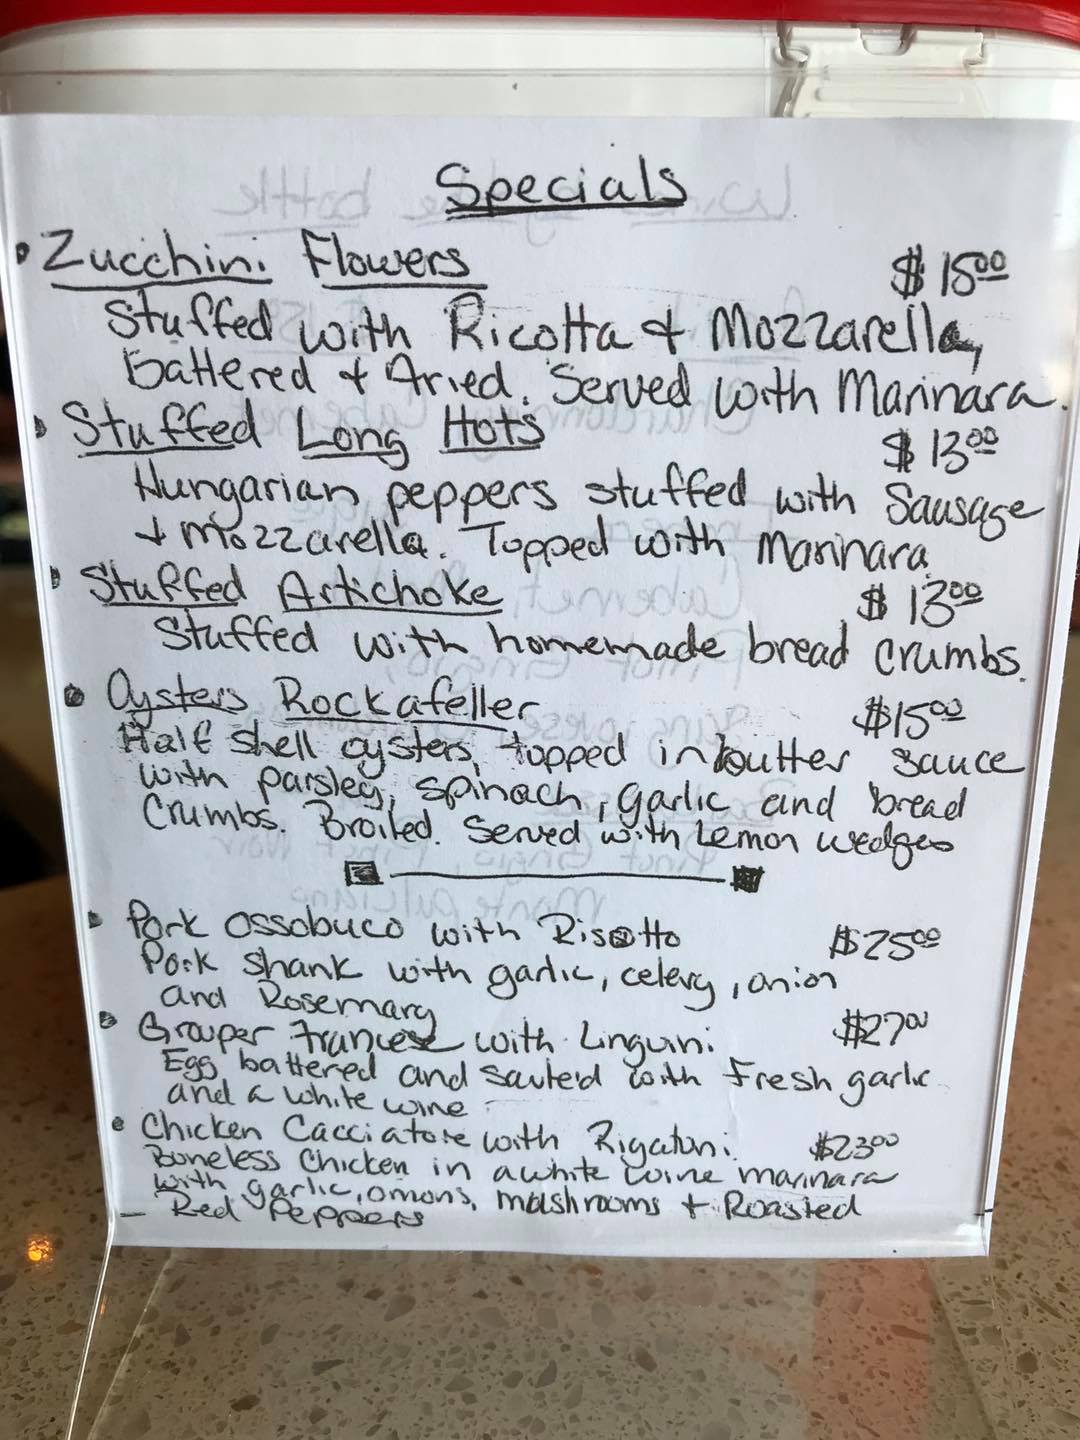 Specials
• Zucchini Flowers $ 15⁰⁰
Stuffed with Ricotta & Mozzarella,
battered & fried. Served with Marinara.
• Stuffed Long Hots $ 13⁰⁰
Hungarian peppers stuffed with Sausage
& Mozzarella. Topped with Marinara.
• Stuffed Artichoke $ 13⁰⁰
Stuffed with homemade bread crumbs.
• Oysters Rockafeller $15⁰⁰
Half shell oysters, topped in butter sauce
with parsley, spinach, garlic and bread
crumbs. Broiled. Served with Lemon wedges
• Pork Ossobuco with Risotto $25⁰⁰
Pork shank with garlic, celery, onion
and Rosemary
• Grouper Francese with Linguini $27⁰⁰
Egg battered and sauteéd with fresh garlic
and a white wine
• Chicken Cacciatore with Rigatoni $23⁰⁰
Boneless Chicken in a white wine marinara
with garlic, onions, mushrooms & Roasted
Red Peppers